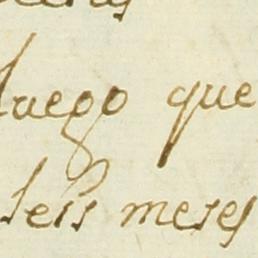 luego que
seis meses